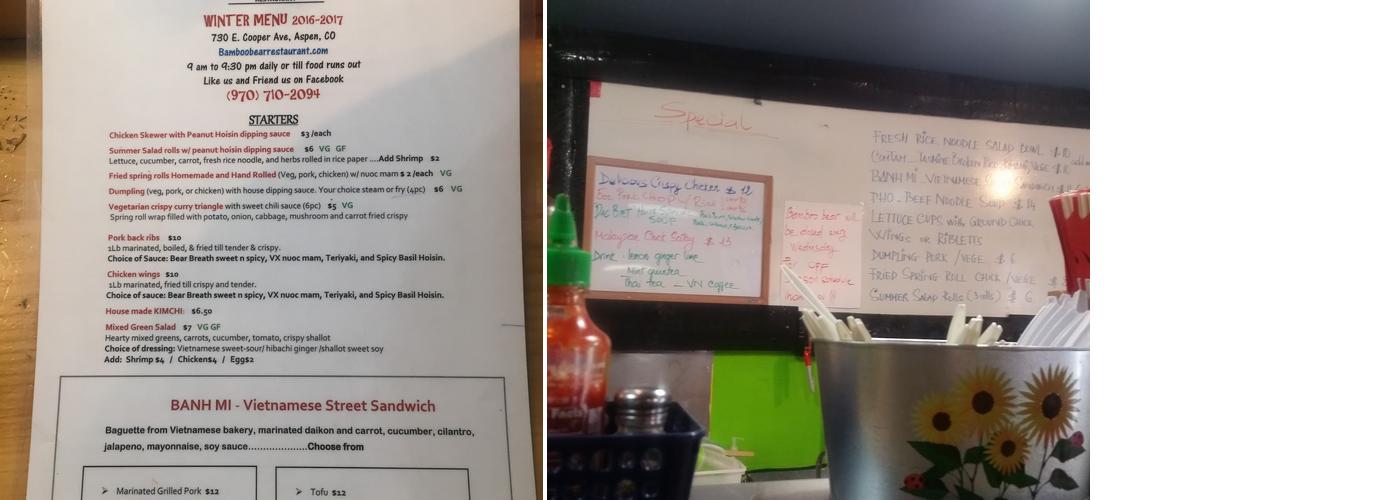 WINTER MENU 2016-2017
730 E. Cooper Ave, Aspen, CO
Bamboobearrestaurant.com
9 am to 9:30 pm daily or till food runs out
Like us and Friend us on Facebook
(970) 710-2094
STARTERS
Chicken Skewer with Peanut Hoisin dipping sauce $3 /each
Summer Salad rolls w/ peanut hoisin dipping sauce $6 VG GF
Lettuce, cucumber, carrot, fresh rice noodle, and herbs rolled in rice paper ....Add Shrimp $2
Fried spring rolls Homemade and Hand Rolled (Veg, pork, chicken) w/ nuoc mam $ 2 /each VG
Dumpling (veg, pork, or chicken) with house dipping sauce. Your choice steam or fry (4pc) $6 VG
Vegetarian crispy curry triangle with sweet chili sauce (6pc) $5 VG
Spring roll wrap filled with potato, onion, cabbage, mushroom and carrot fried crispy
Pork back ribs $10
1Lb marinated, boiled, & fried till tender & crispy.
Choice of Sauce: Bear Breath sweet n spicy, VX nuoc mam, Teriyaki, and Spicy Basil Hoisin.
Chicken wings $10
1Lb marinated, fried till crispy and tender.
Choice of sauce: Bear Breath sweet n spicy, VX nuoc mam, Teriyaki, and Spicy Basil Hoisin.
House made KIMCHI: $6.50
Mixed Green Salad $7 VG GF
Hearty mixed greens, carrots, cucumber, tomato, crispy shallot
Choice of dressing: Vietnamese sweet-sour/ hibachi ginger /shallot sweet soy
Add: Shrimp $4 / Chicken$4 / Egg$2
BANH MI - Vietnamese Street Sandwich
Baguette from Vietnamese bakery, marinated daikon and carrot, cucumber, cilantro,
jalapeno, mayonnaise, soy sauce.....................Choose from
Marinated Grilled Pork $12
Tofu $12
Special
Delicious Crispy Chicken $ 12
Pork Chop w/ Rice
Soup
Malaysian Chick Satay $ 13
Drink: lemon ginger lime
Thai tea _ VN Coffee
Bamboo bear will
be closed every
Wednesday
For OFF
FRESH RICE NOODLE SALAD BOWL $ 10
BANH MI _ VIETNAMESE
PHO _ BEEF NOODLE SOUP $ 14
LETTUCE CUPS with GROUND CHICK
WINGS OR RIBLETTS
DUMPLING PORK / VEGE $ 6
FRIED SPRING ROLL CHICK / VEGE $
SUMMER SALAD Rolls (3 rolls) $ 6